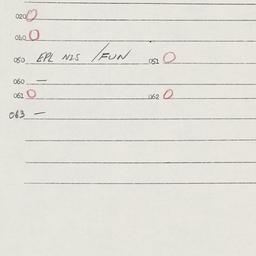 020 O
040 O
050 EPL NIS / FUN 051 O
060 —
061 O 062 O
063 —